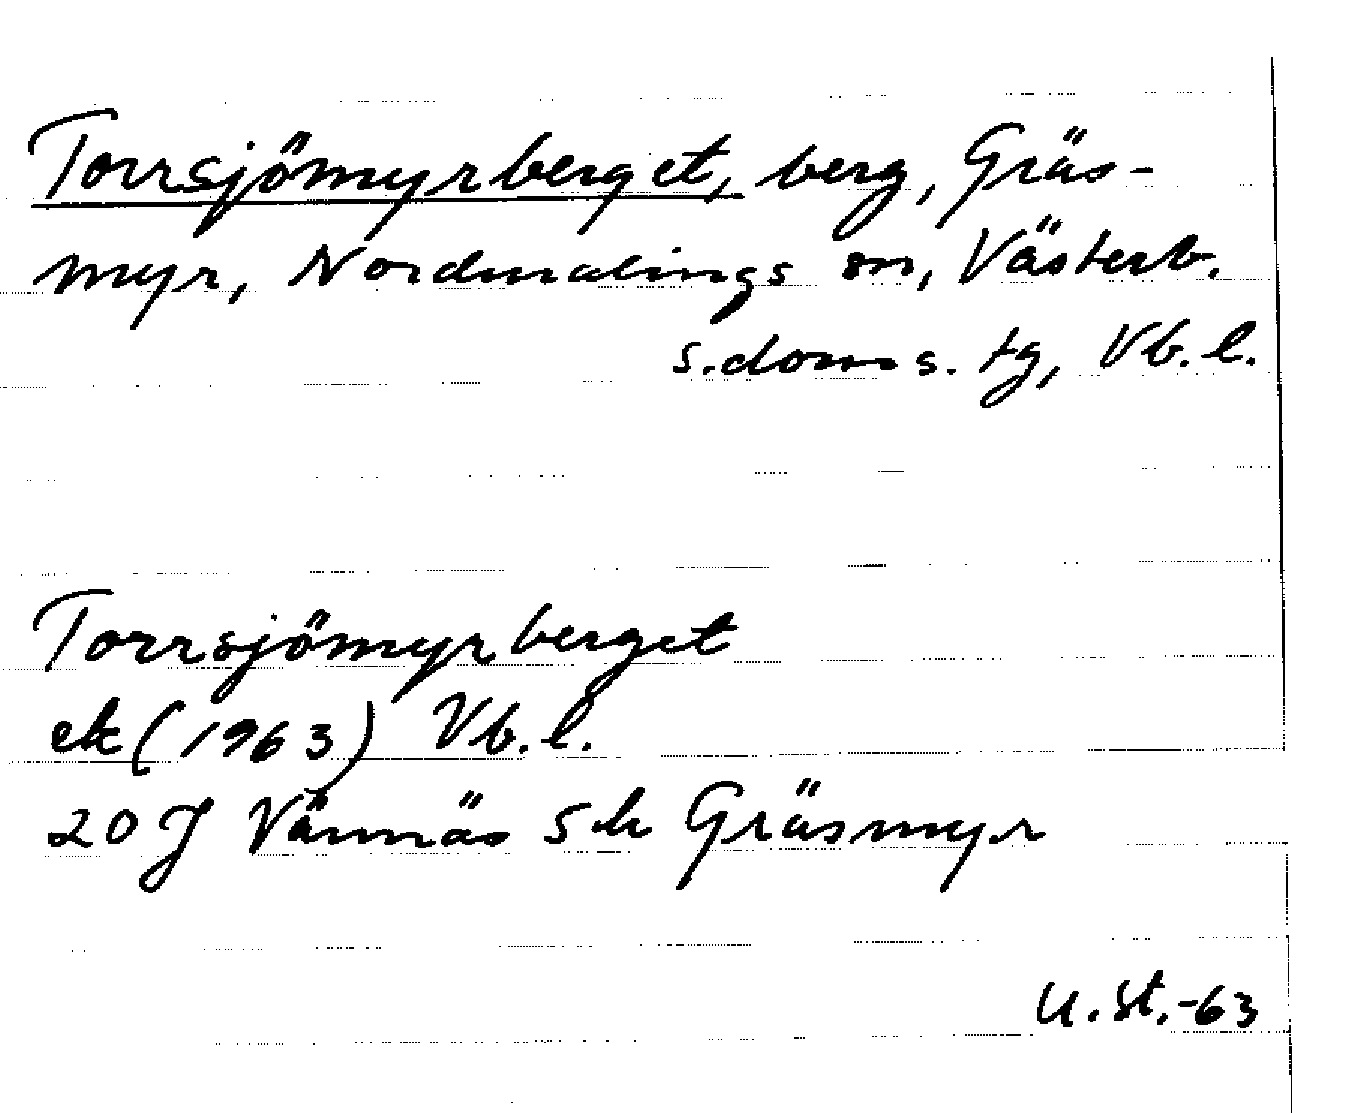 Torrsjömyrberget, berg, Gräs-
myr, Nordmalings sn, Västerb.
s. doms. tg, Vb. l.
Torrsjömyrberget
ek (1963) Vb. l.
20 J Vännäs 5 h Gräsmyr
U. St. -63